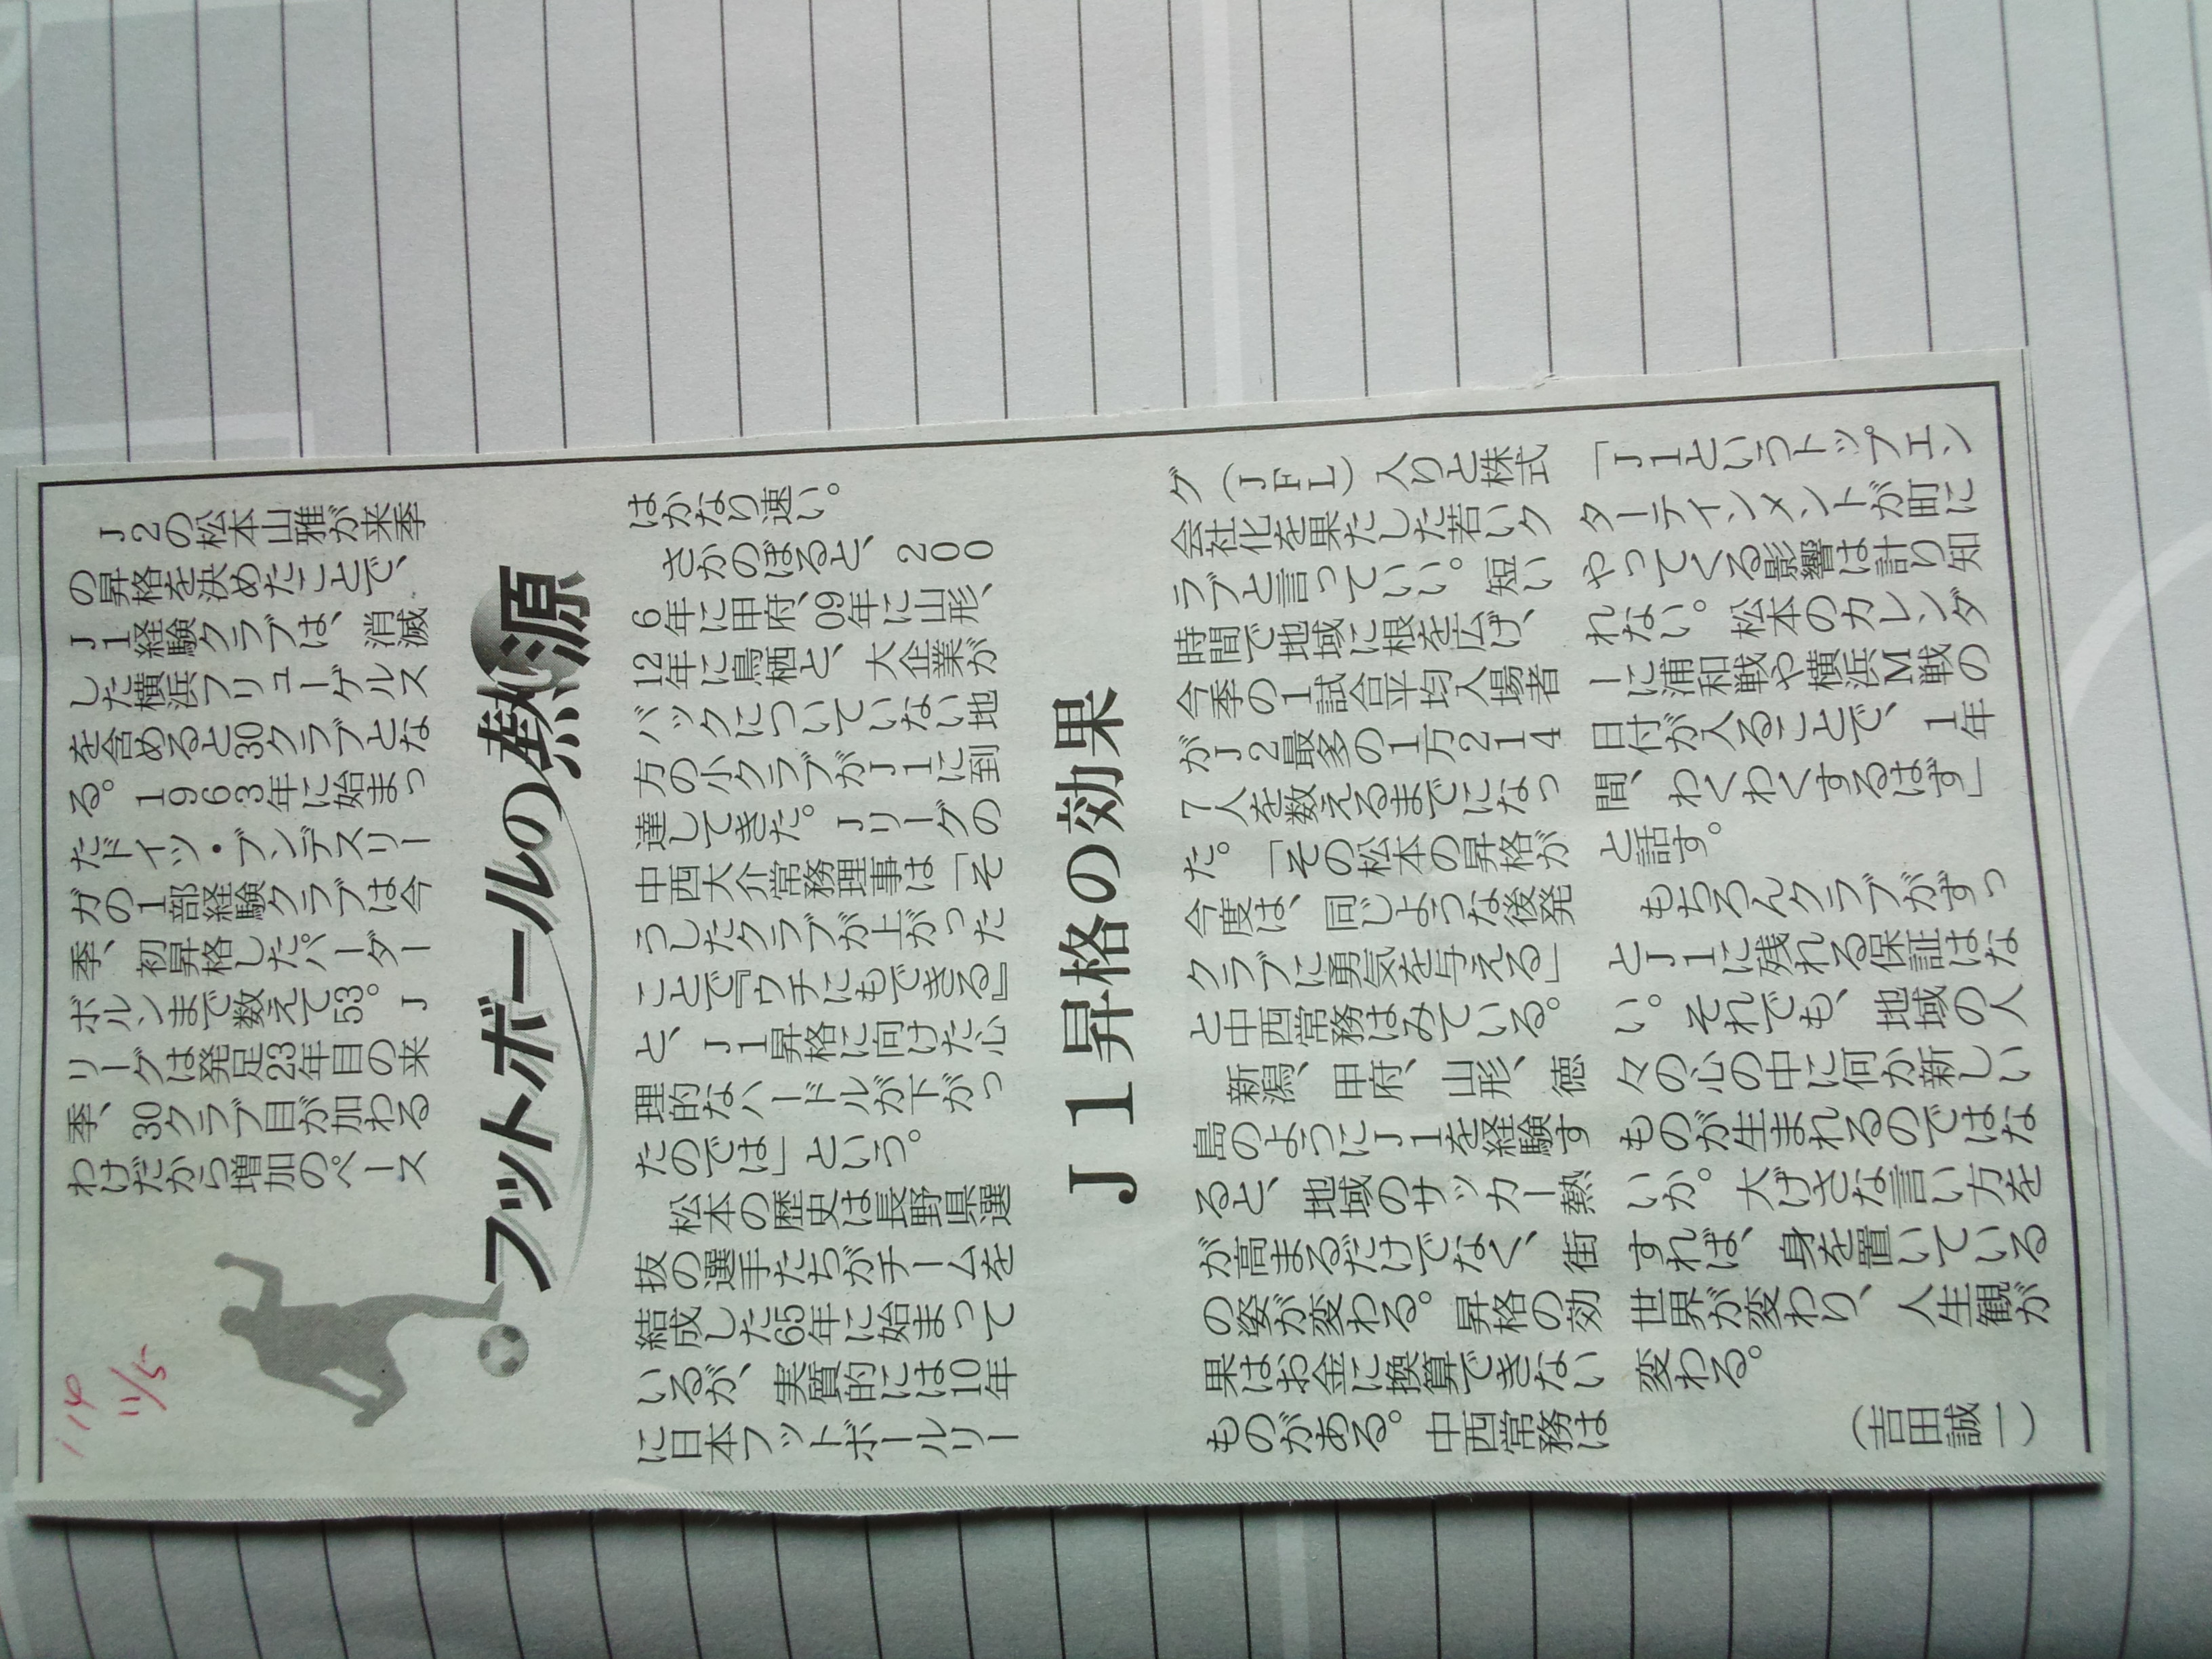 '14
11/5
フットボールの熱源
J1昇格の効果
J2の松本山雅が来季
の昇格を決めたことで、
J1経験クラブは、消滅
した横浜フリューゲルス
を含めると30クラブとな
る。1963年に始まっ
たドイツ・ブンデスリー
ガの1部経験クラブは今
季、初昇格したパーダー
ボルンまで数えて53。J
リーグは発足23年目の来
季、30クラブ目が加わる
わけだから増加のペース
はかなり速い。
さかのぼると、200
6年に甲府、09年に山形、
12年に鳥栖と、大企業が
バックについていない地
方の小クラブがJ1に到
達してきた。Jリーグの
中西大介常務理事は「そ
うしたクラブが上がった
ことで『ウチにもできる』
と、J1昇格に向けた心
理的なハードルが下がっ
たのでは」という。
松本の歴史は長野県選
抜の選手たちがチームを
結成した65年に始まって
いるが、実質的には10年
に日本フットボールリー
グ（JFL）入りと株式
会社化を果たした若いク
ラブと言っていい。短い
時間で地域に根を広げ、
今季の1試合平均入場者
がJ2最多の1万214
7人を数えるまでになっ
た。「その松本の昇格が
今度は、同じような後発
クラブに勇気を与える」
と中西常務はみている。
新潟、甲府、山形、徳
島のようにJ1を経験す
ると、地域のサッカー熱
が高まるだけでなく、街
の姿が変わる。昇格の効
果はお金に換算できない
ものがある。中西常務は
「J1というトップエン
ターテインメントが町に
やってくる影響は計り知
れない。松本のカレンダ
ーに浦和戦や横浜M戦の
日付が入ることで、1年
間、わくわくするはず」
と話す。
もちろんクラブがずっ
とJ1に残れる保証はな
い。それでも、地域の人
々の心の中に何か新しい
ものが生まれるのではな
いか。大げさな言い方を
すれば、身を置いている
世界が変わり、人生観が
変わる。
（吉田誠一）